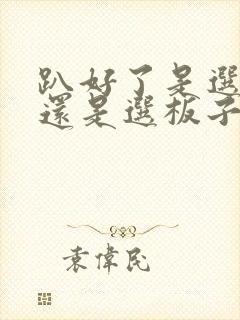 趴好了是選
還是選板子
袁偉民